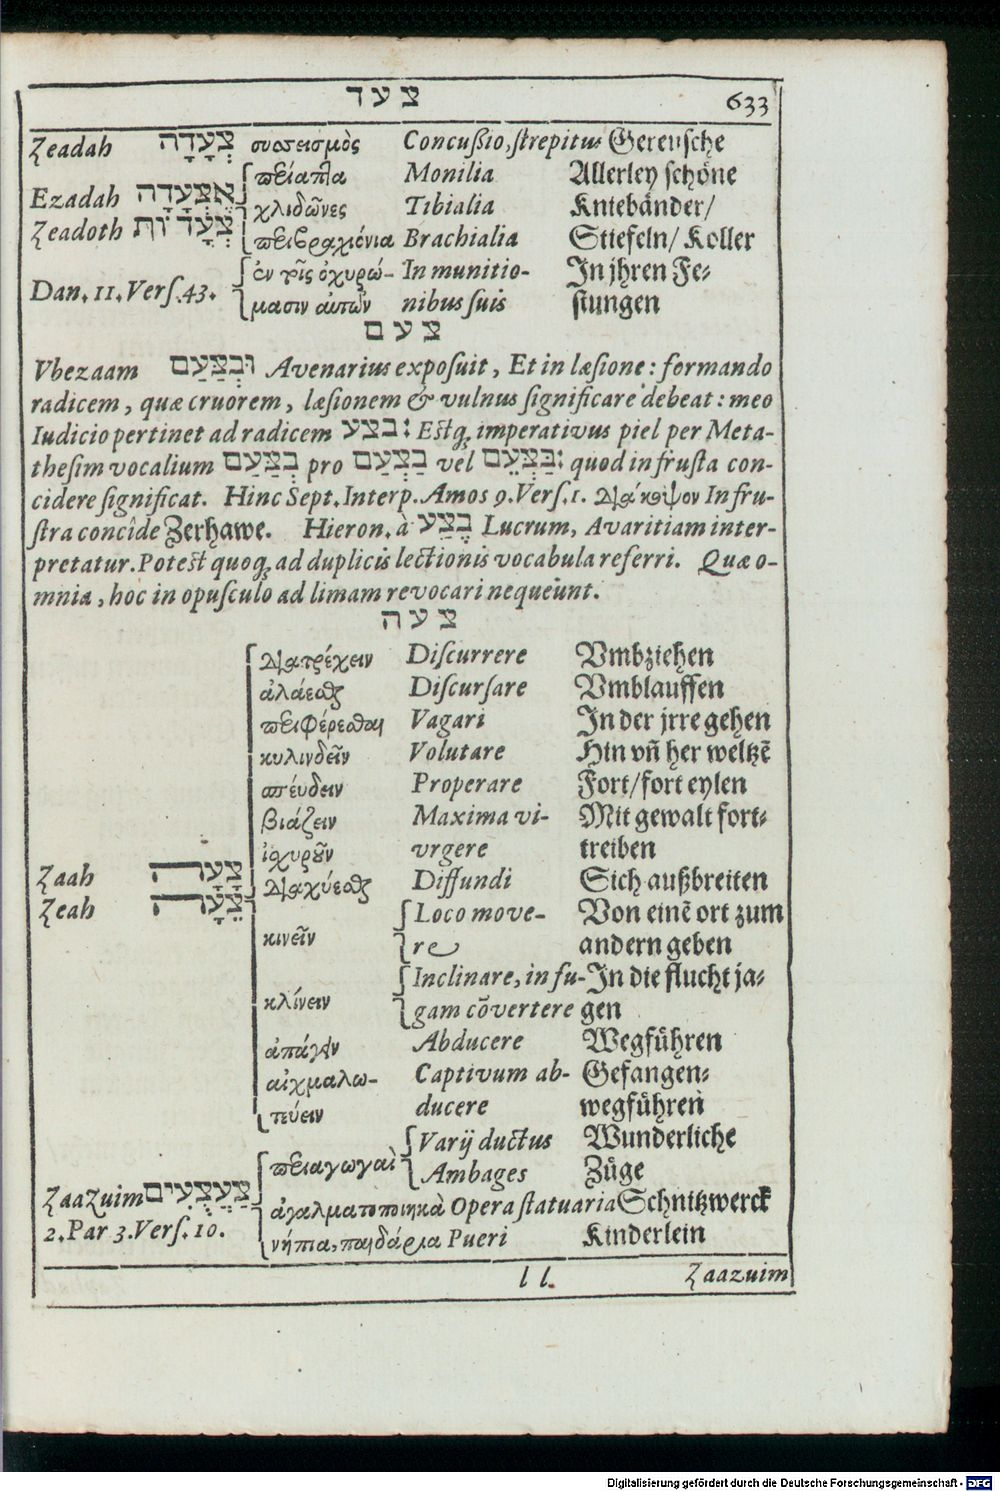 צעד 633
Zeadah צְעָדָה συσεισμὸς Concußio, strepitus Gereusche
περίαπτα Monilia Allerley schöne
Ezadah אֶצְעָדָה χλιδῶνες Tibialia Kniebänder/
Zeadoth צְעָדוֹת περιβραχιόνια Brachialia Stiefeln/ Koller
ἐν τοῖς ὀχυρώ- In munitio- In jhren Fe-
Dan. 11. Vers. 43. μασιν αὐτῶν nibus suis stungen
צעם
Vbezaam וּבְצַעַם Avenarius exposuit, Et in læsione: formando
radicem, quæ cruorem, læsionem & vulnus significare debeat: meo
Iudicio pertinet ad radicem בצע: Estq; imperativus piel per Meta-
thesim vocalium בְצַעַם pro בַצְעַם vel בַּצְעֵם: quod in frusta con-
cidere significat. Hinc Sept. Interp. Amos 9. Vers. 1. διάκοψον In fru-
stra concîde Zerhawe. Hieron. à בֶצַע Lucrum, Avaritiam inter-
pretatur. Potest quoq; ad duplicis lectionis vocabula referri. Quæ o-
mnia, hoc in opusculo ad limam revocari nequeunt.
צעה
διατρέχειν Discurrere Vmbziehen
ἀλάεσθαι Discursare Vmblauffen
περιφέρεσθαι Vagari In der jrre gehen
κυλινδεῖν Volutare Hin vñ her weltzẽ
σπεύδειν Properare Fort/fort eylen
βιάζειν Maxima vi- Mit gewalt fort-
ἰσχυροῦν vrgere treiben
Zaah צָעָה διαχύεσθαι Diffundi Sich außbreiten
Zeah צֵעָה Loco move- Von einẽ ort zum
κινεῖν re andern geben
Inclinare, in fu- In die flucht ja-
κλίνειν gam cõvertere gen
ἀπάγειν Abducere Wegführen
αἰχμαλω- Captivum ab- Gefangen-
τεύειν ducere wegführen
Varij ductus Wunderliche
περιαγωγαὶ Ambages Züge
Zaazuim צַעֲצֻעִים ἀγαλματοποιηκὰ Opera statuaria Schnitzwerck
2. Par 3. Vers. 10. νήπια, παιδάρια Pueri Kinderlein
l l. Zaazuim
Digitalisierung gefördert durch die Deutsche Forschungsgemeinschaft - DFG